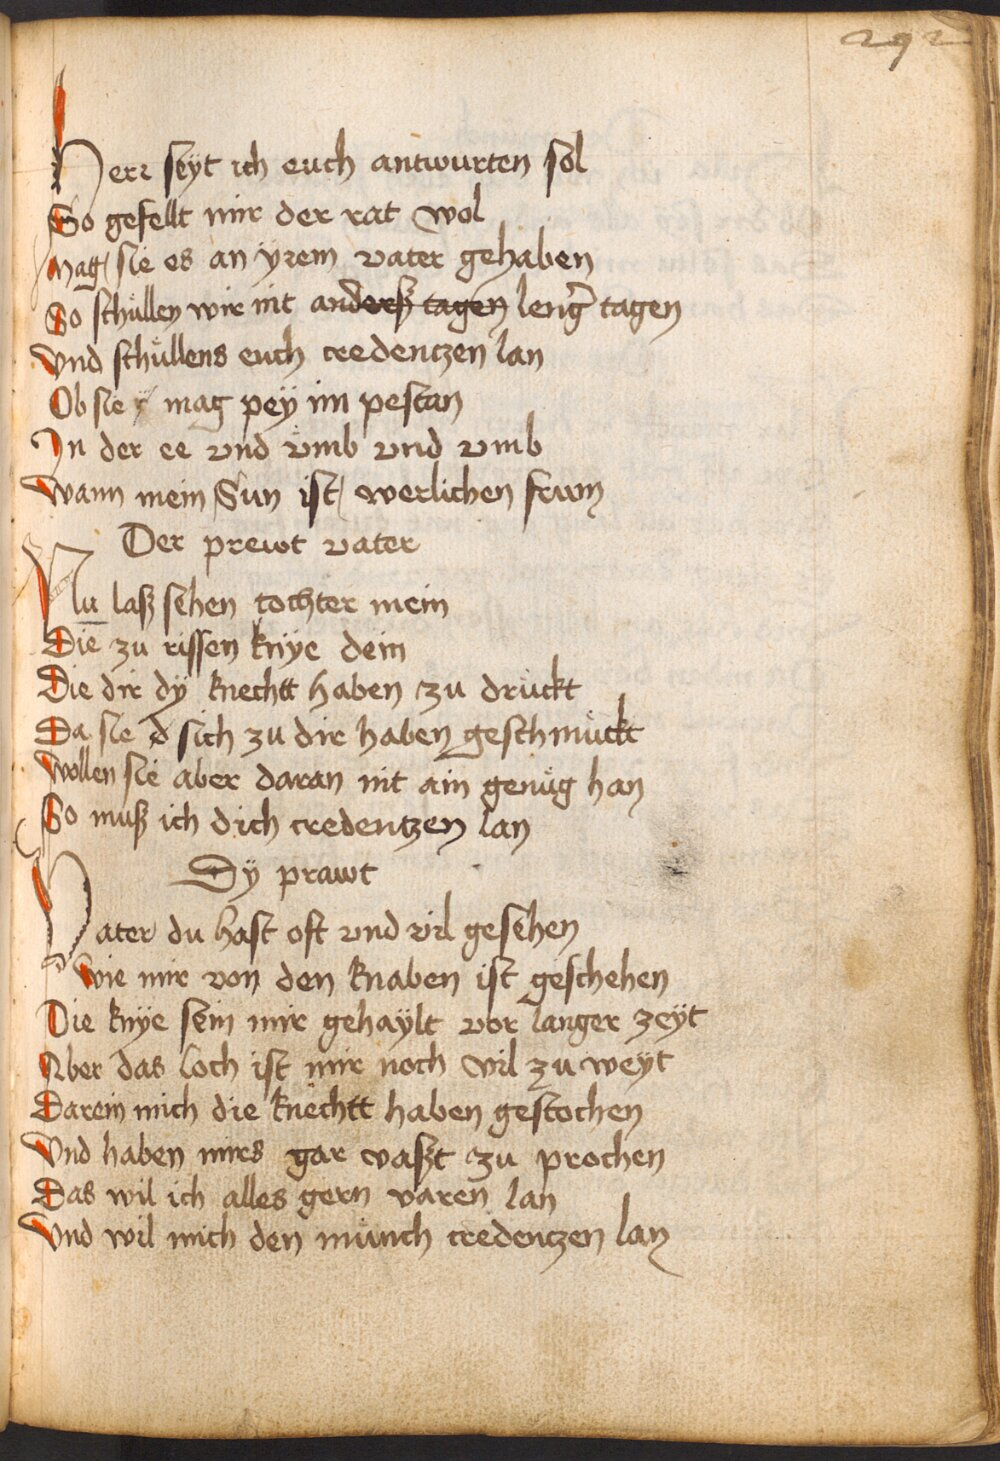 292
Herr seyt ich euch antwurten sol
So gefellt mir der rat wol
Mag sie es an yrem vater gehaben
So schüllen wir nit anderß tagen leng̃ tagen
Vnd schüllens euch credentzen lan
Ob sie mag pey im pestan
In der ee vnd vmb vnd vmb
Wann mein Sun ist werlichen frum
Der prewt vater
Nu laß sehen tochter mein
Die zu rissen knye dein
Die dir dÿ knechtt haben zu drückt
Da sie d sich zu dir haben geschmückt
Wollen sie aber daran nit ain genüg han
So muß ich dich credentzen lan
Dÿ prawt
Vater du hast oft vnd vil gesehen
Wie mir von den knaben ist geschehen
Die knÿe sein mir gehaÿlt vor langer zeÿt
Aber das loch ist mir noch vil zu weyt
Darein mich die knechtt haben gestochen
Vnd haben mirs gar vaßt zu prochen
Das wil ich alles gern varen lan
Vnd wil mich den münch credentzen lan